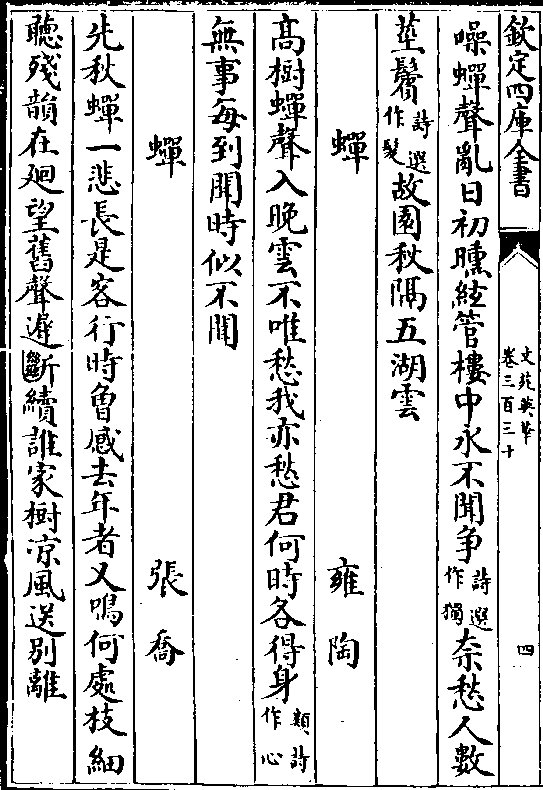 欽定四庫全書
文苑英華
卷三百三十
四
噪蟬聲亂日初曛絃管樓中永不聞争詩選作獨奈愁人數
莖鬢詩選作髮故園秋隔五湖雲
蟬 雍陶
高樹蟬聲入晚雲不唯愁我亦愁君何時各得身類詩作心
無事每到聞時似不聞
蟬 張喬
先秋蟬一悲長是客行時曾感去年者又鳴何處枝細
聽殘韻在廻望舊聲遲斷續誰家樹凉風送别離